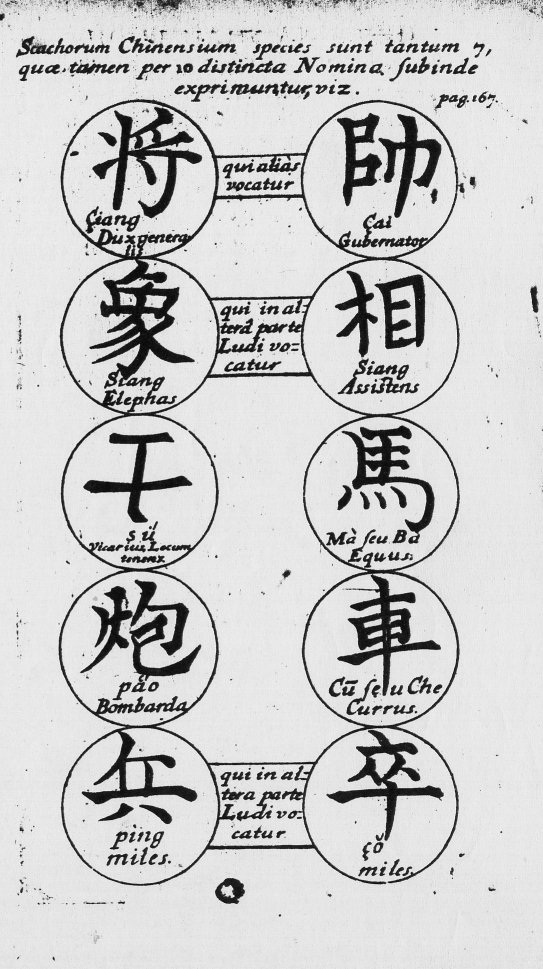 Scachorum Chinensium species sunt tantum 7,
quæ tamen per 10 distincta Nomina ſubinde
exprimuntur, viz.
pag. 167.
將
Çiang
Dux genera
lis
qui aliàs
vocatur
帥
Çai
Gubernator
象
Siang
Elephas
qui in al=
terâ parte
Ludi vo=
catur
相
Siang
Aſſiſtens
干
sú
Vicarius, Locum
tenens
馬
Mà ſeu Ba
Equus.
炮
pǎo
Bombarda
車
Cū ſeu Che
Currus.
兵
ping
miles.
qui in al=
tera parte
Ludi vo=
catur
卒
çŏ
miles.